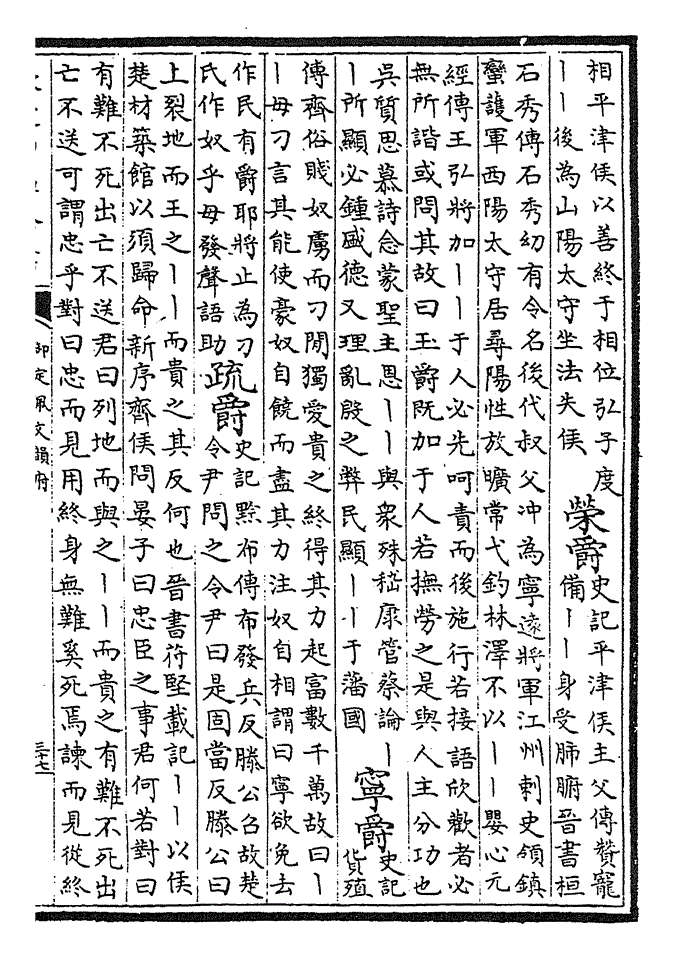 相平津侯以善終于相位弘子度
丨丨後為山陽太守坐法失侯
榮爵
史記平津侯主父傳贊寵
備丨丨身受肺腑晉書桓
石秀傳石秀幼有令名後代叔父沖為寧遠將軍江州刺史領鎮
蠻護軍西陽太守居尋陽性放曠常弋釣林澤不以丨丨嬰心元
經傳王弘將加丨丨于人必先呵責而後施行若接語欣歡者必
無所諧或問其故曰王爵既加于人若撫勞之是與人主分功也
吳質思慕詩念蒙聖主恩丨丨與衆殊嵇康管蔡論丨
丨所顯必鍾盛德又理亂殷之弊民顯丨丨于藩國
寧爵
史記
貨殖
傳齊俗賤奴虜而刁閒獨愛貴之終得其力起富數千萬故曰丨
丨毋刁言其能使豪奴自饒而盡其力注奴自相謂曰寧欲免去
作民有爵耶將止為刁
氏作奴乎毋發聲語助
疏爵
史記黥布傳布發兵反滕公召故楚
令尹問之令尹曰是固當反滕公曰
上裂地而王之丨丨而貴之其反何也晉書苻堅載記丨丨以侯
楚材築館以須歸命新序齊侯問晏子曰忠臣之事君何若對曰
有難不死出亡不送君曰列地而與之丨丨而貴之有難不死出
亡不送可謂忠乎對曰忠而見用終身無難奚死焉諫而見從終
御定佩文韻府
三十七